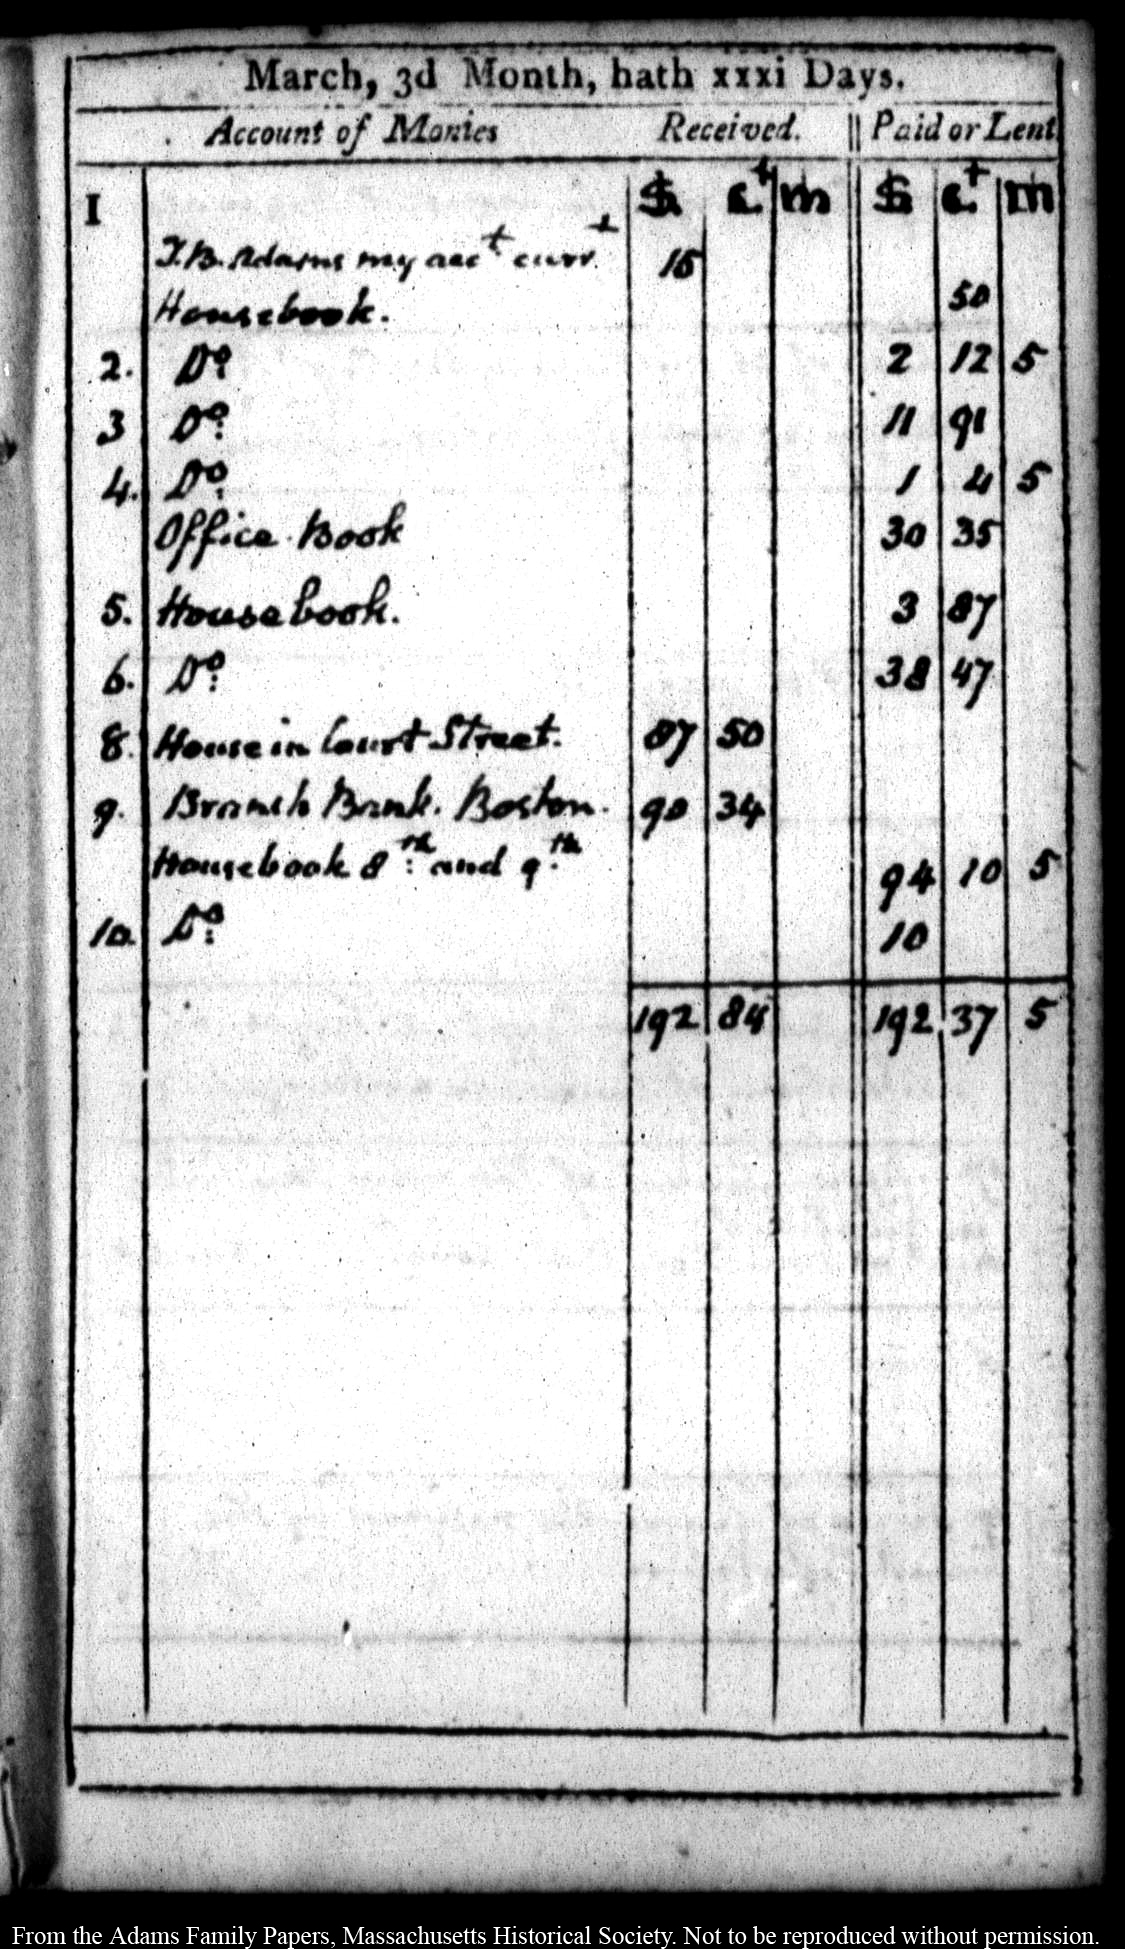 March, 3d Month, hath xxxi Days.
Account of Monies Received. Paid or Lent
1 $ c.t m $ c.t m
T.B. Adams my acct curr.t 15
Housebook. 50
2. Do: 2 12 5
3 Do: 11 91
4. Do: 1 4 5
Office Book 30 35
5. House book. 3 87
6. Do: 38 47
8. House in Court Street. 87 50
9. Branch Bank. Boston. 90 34
Housebook 8:th and 9.th 94 10 5
10. Do: 10
192 84 192 37 5
From the Adams Family Papers, Massachusetts Historical Society. Not to be reproduced without permission.